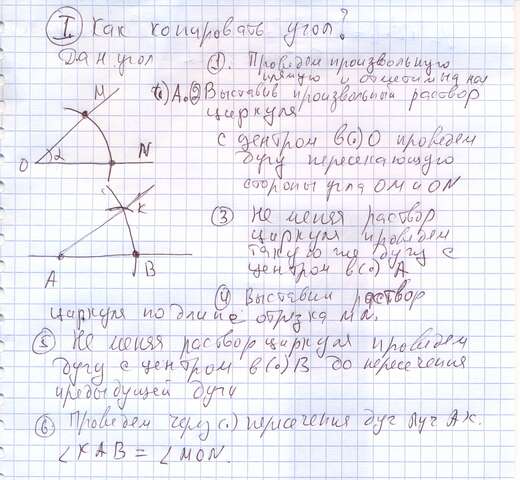 I Как копировать угол?
Дан угол
M
O
α
N
① Проведем произвольную
прямую и отметим на ней
(·) A. ② Выставив произвольный раствор
циркуля
с центром в (·) O проведем
дугу пересекающую
стороны угла OM и ON
K
A
B
③ Не меняя раствор
циркуля проведем
такую же дугу с
центром в (·) A
④ Выставим раствор
циркуля по длине отрезка MN.
⑤ Не меняя раствор циркуля проведем
дугу с центром в (·) B до пересечения
предыдущей дуги
⑥ Проведем через (·) пересечения дуг луч AK.
∠KAB = ∠MON.